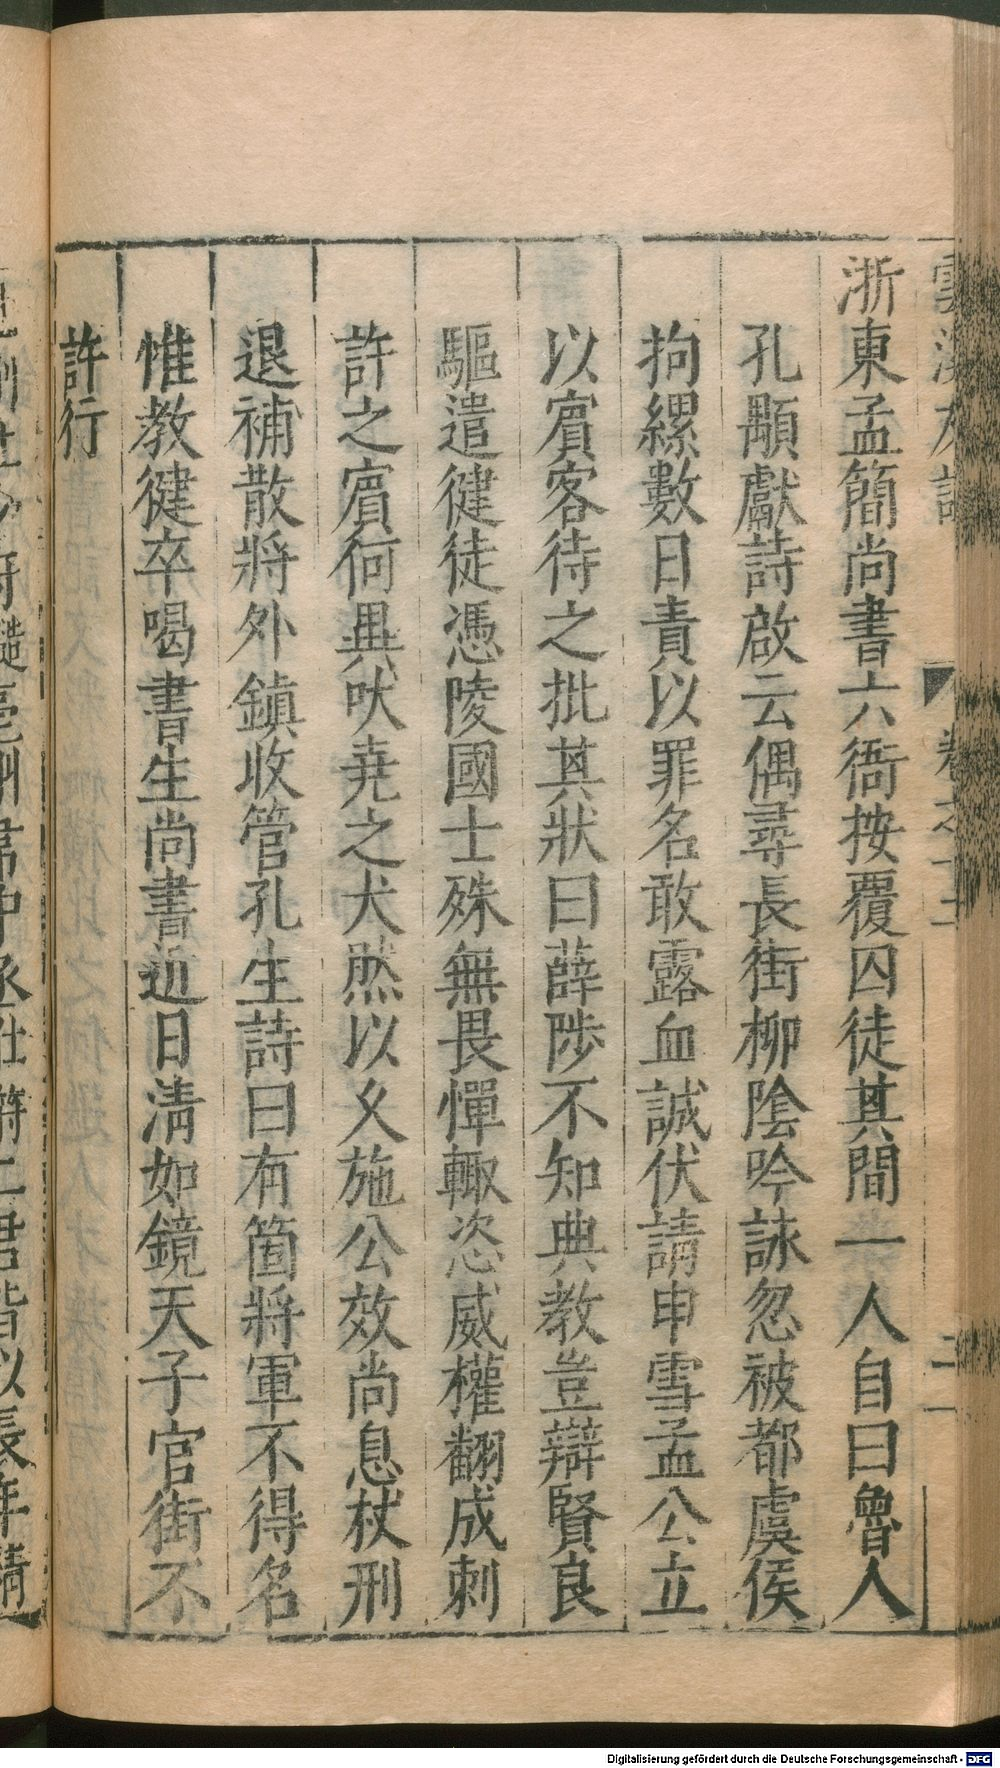 浙東孟簡尚書六衙按覆囚徒其間一人自曰魯人
孔顒獻詩啟云偶尋長街柳陰吟詠忽被都虞侯
拘縲數日責以罪名敢露血誠伏請申雪孟公立
以賓客待之批其狀曰薛陟不知典教豈辯賢良
驅遣健徒憑陵國士殊無畏憚輙恣威權翻成刺
許之賓何異吠堯之犬然以久施公效尚息杖刑
退補散將外鎮收管孔生詩曰有箇將軍不得名
惟教健卒喝書生尚書近日淸如鏡天子官街不
許行
Digitalisierung gefördert durch die Deutsche Forschungsgemeinschaft - DFG